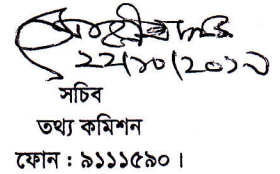 ২২/১০/২০১২
সচিব
তথ্য কমিশন
ফোন : ৯১১১৫৯০।